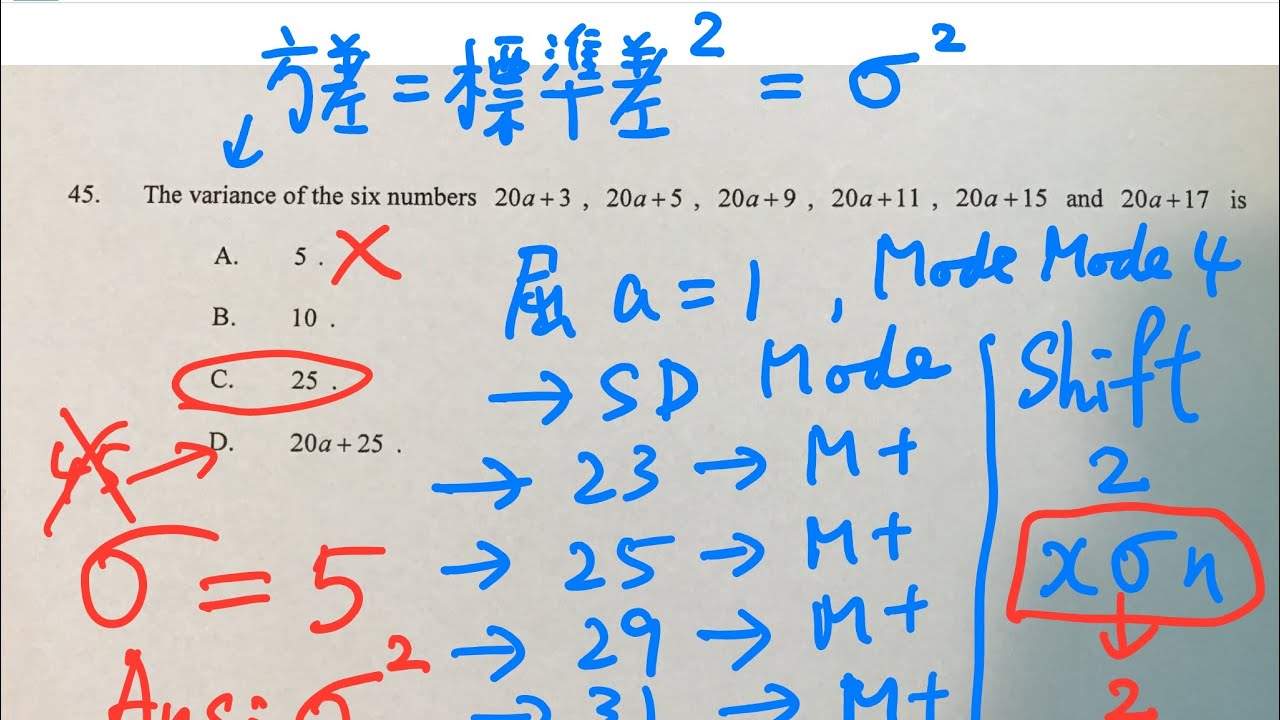 方差 = 標準差² = σ²
45. The variance of the six numbers 20a+3 , 20a+5 , 20a+9 , 20a+11 , 20a+15 and 20a+17 is
A. 5 .
B. 10 .
C. 25 .
D. 20a+25 .
45
σ = 5
Ans: σ²
屈 a = 1 , Mode Mode 4
→ SD Mode
→ 23 → M+
→ 25 → M+
→ 29 → M+
→ 31 → M+
Shift
2
xσn
2